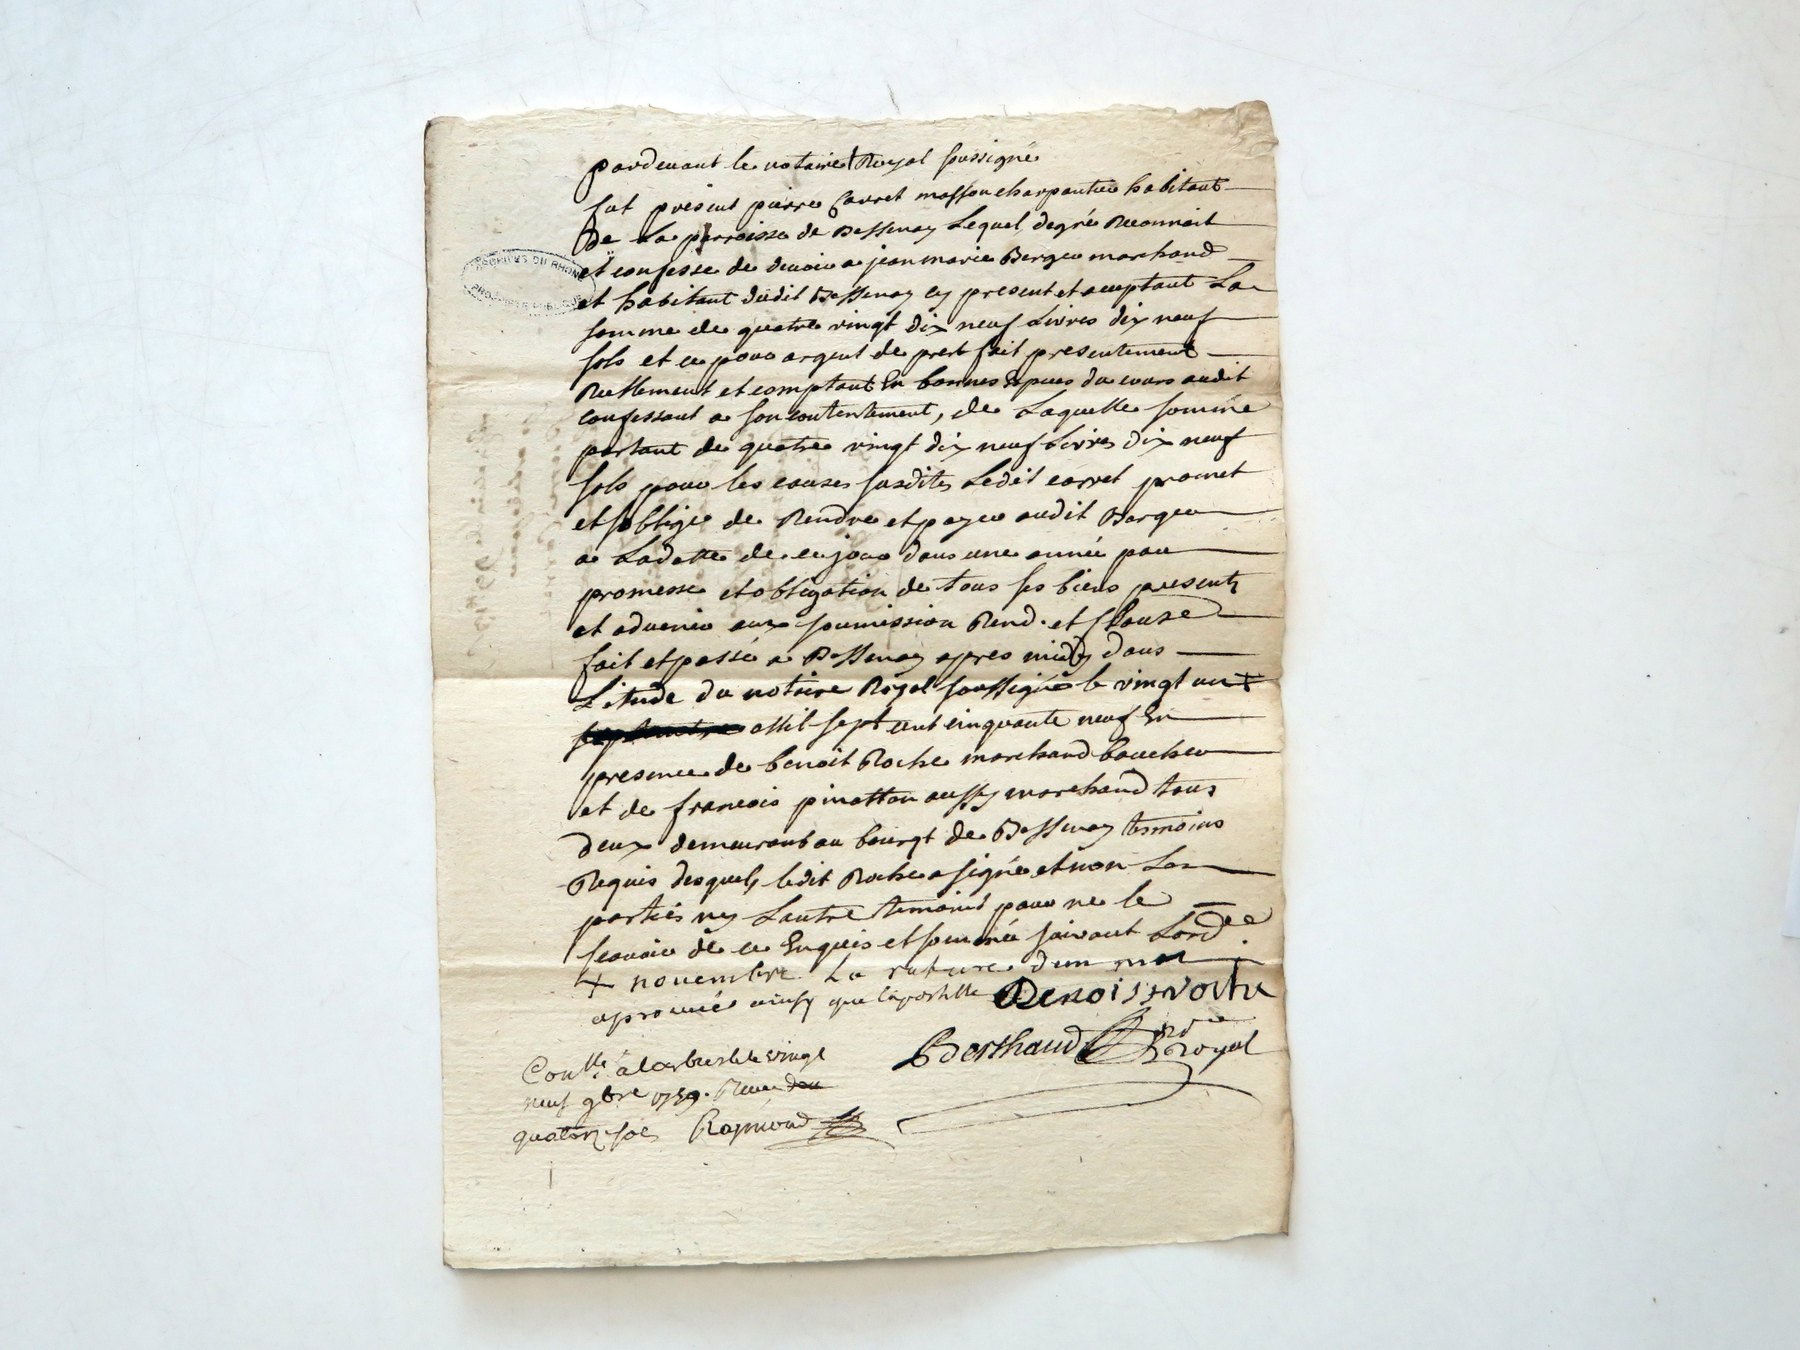 pardevant le notaire Royal soussigné
fut présent pierre Carret masson charpantier habitant
de La parroisse de Bessenay Lequel degré Reconnoit
et confesse de devoir a jean marie Berger marchand
et habitant dudit Bessenay cy present et acceptant La
somme de quatre vingt dix neuf Livres dix neuf
sols et ce pour argent de prest fait presentement
Reellement et comptant En bonnes Espces du cours audit
confessant a son contentement, de Laquelle somme
portant de quatre vingt dix neuf Livres dix neuf
sols pour les causes susdites Ledit carret promet
et soblige de Rendre et payer audit Berger
a Ladatte de ce jour dans une année par
promesse et obligation de tous ses biens presents
et advenir aux soumission Rend. et Clause
fait et passé a Bessenay apres midy dans
Létude du notaire Royal soussigné le vingt un +
mil sept cent cinquante neuf En
presence de benoit Roche marchand boucher
et de francois pinatton aussy marchand tous
deux demeurant au bourgt de Bessenay temoins
Requis desquels ledit Roche a signé et non Les
parties ny Lautre temoins pour ne le
scavoir de ce Enquis et sommé suivant Lordce
+ novembre La rature dun mot
aprouvé ainsy que lapostille Benois Roche
Berthaud nre Royal
Conllé a larbresle le vingt
neuf 9bre 1759. Recu
quatorze sols Raymond
ARCHIVES DU RHONE